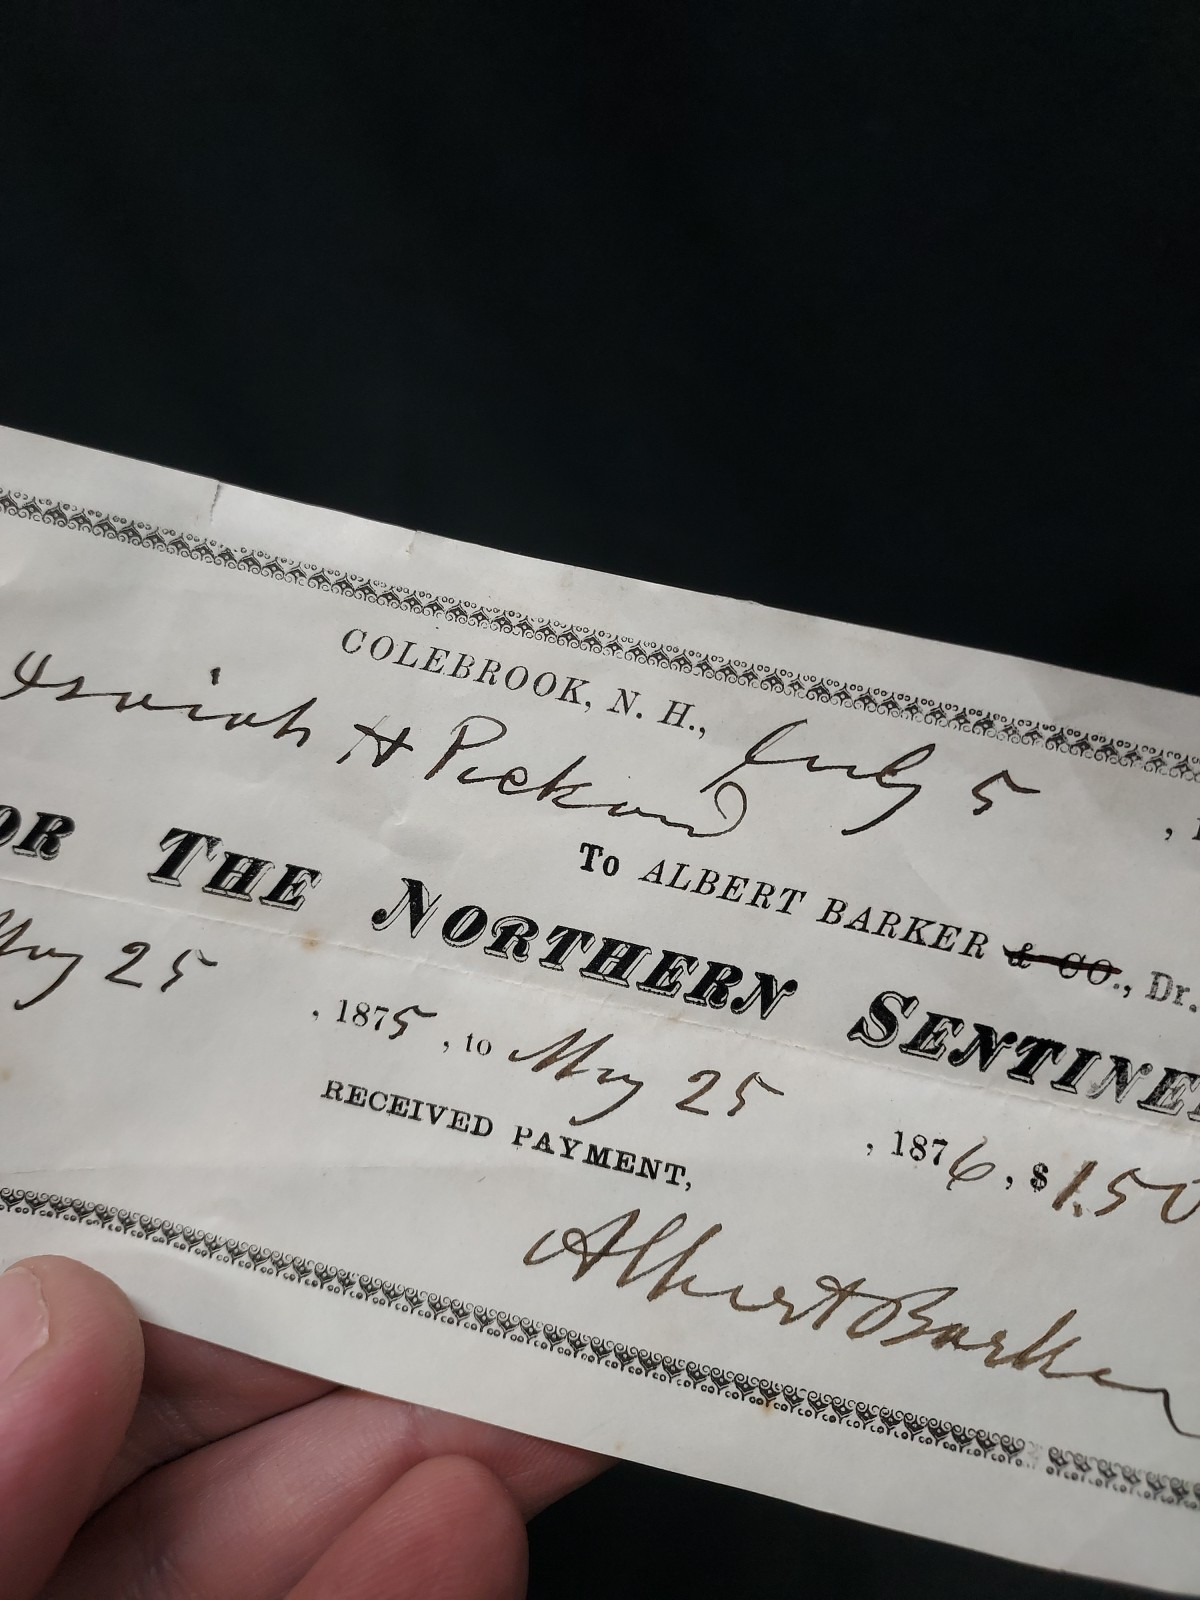 COLEBROOK, N. H., July 5, 1
Isaiah H Pickard
To ALBERT BARKER & CO., Dr.
OR THE NORTHERN SENTINE
May 25, 1875, to May 25, 1876, $1.50
RECEIVED PAYMENT,
Albert Barker